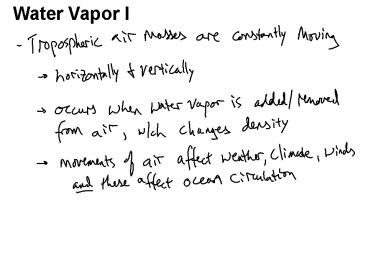 Water Vapor I
- Tropospheric air masses are constantly moving
→ horizontally & vertically
→ occurs when water vapor is added/removed
from air, w/ch changes density
→ movements of air affect weather, climate, winds
and these affect ocean circulation